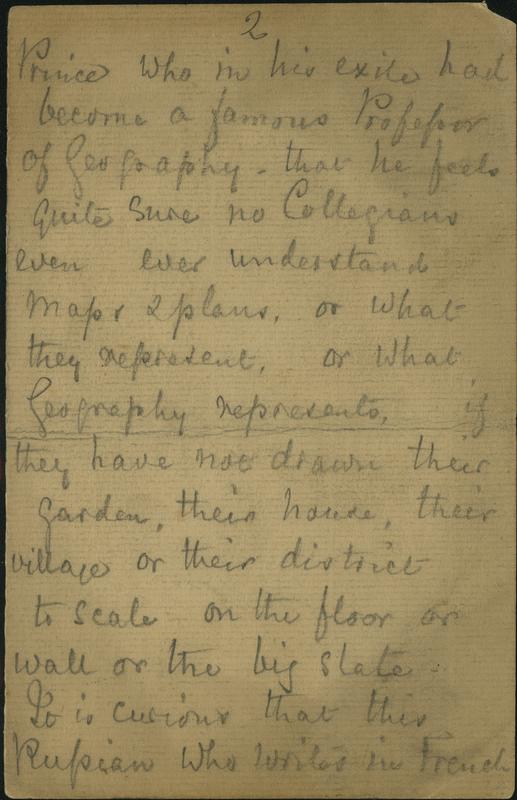 2
Prince who in his exile had
become a famous Professor
of Geography - that he feels
quite sure no Collegians
even ever understand
Maps & plans, or what
they represent, or what
Geography represents, if
they have not drawn their
garden, their house, their
village or their district
to scale on the floor or
wall or the big slate -
It is curious that this
Russian who writes in French